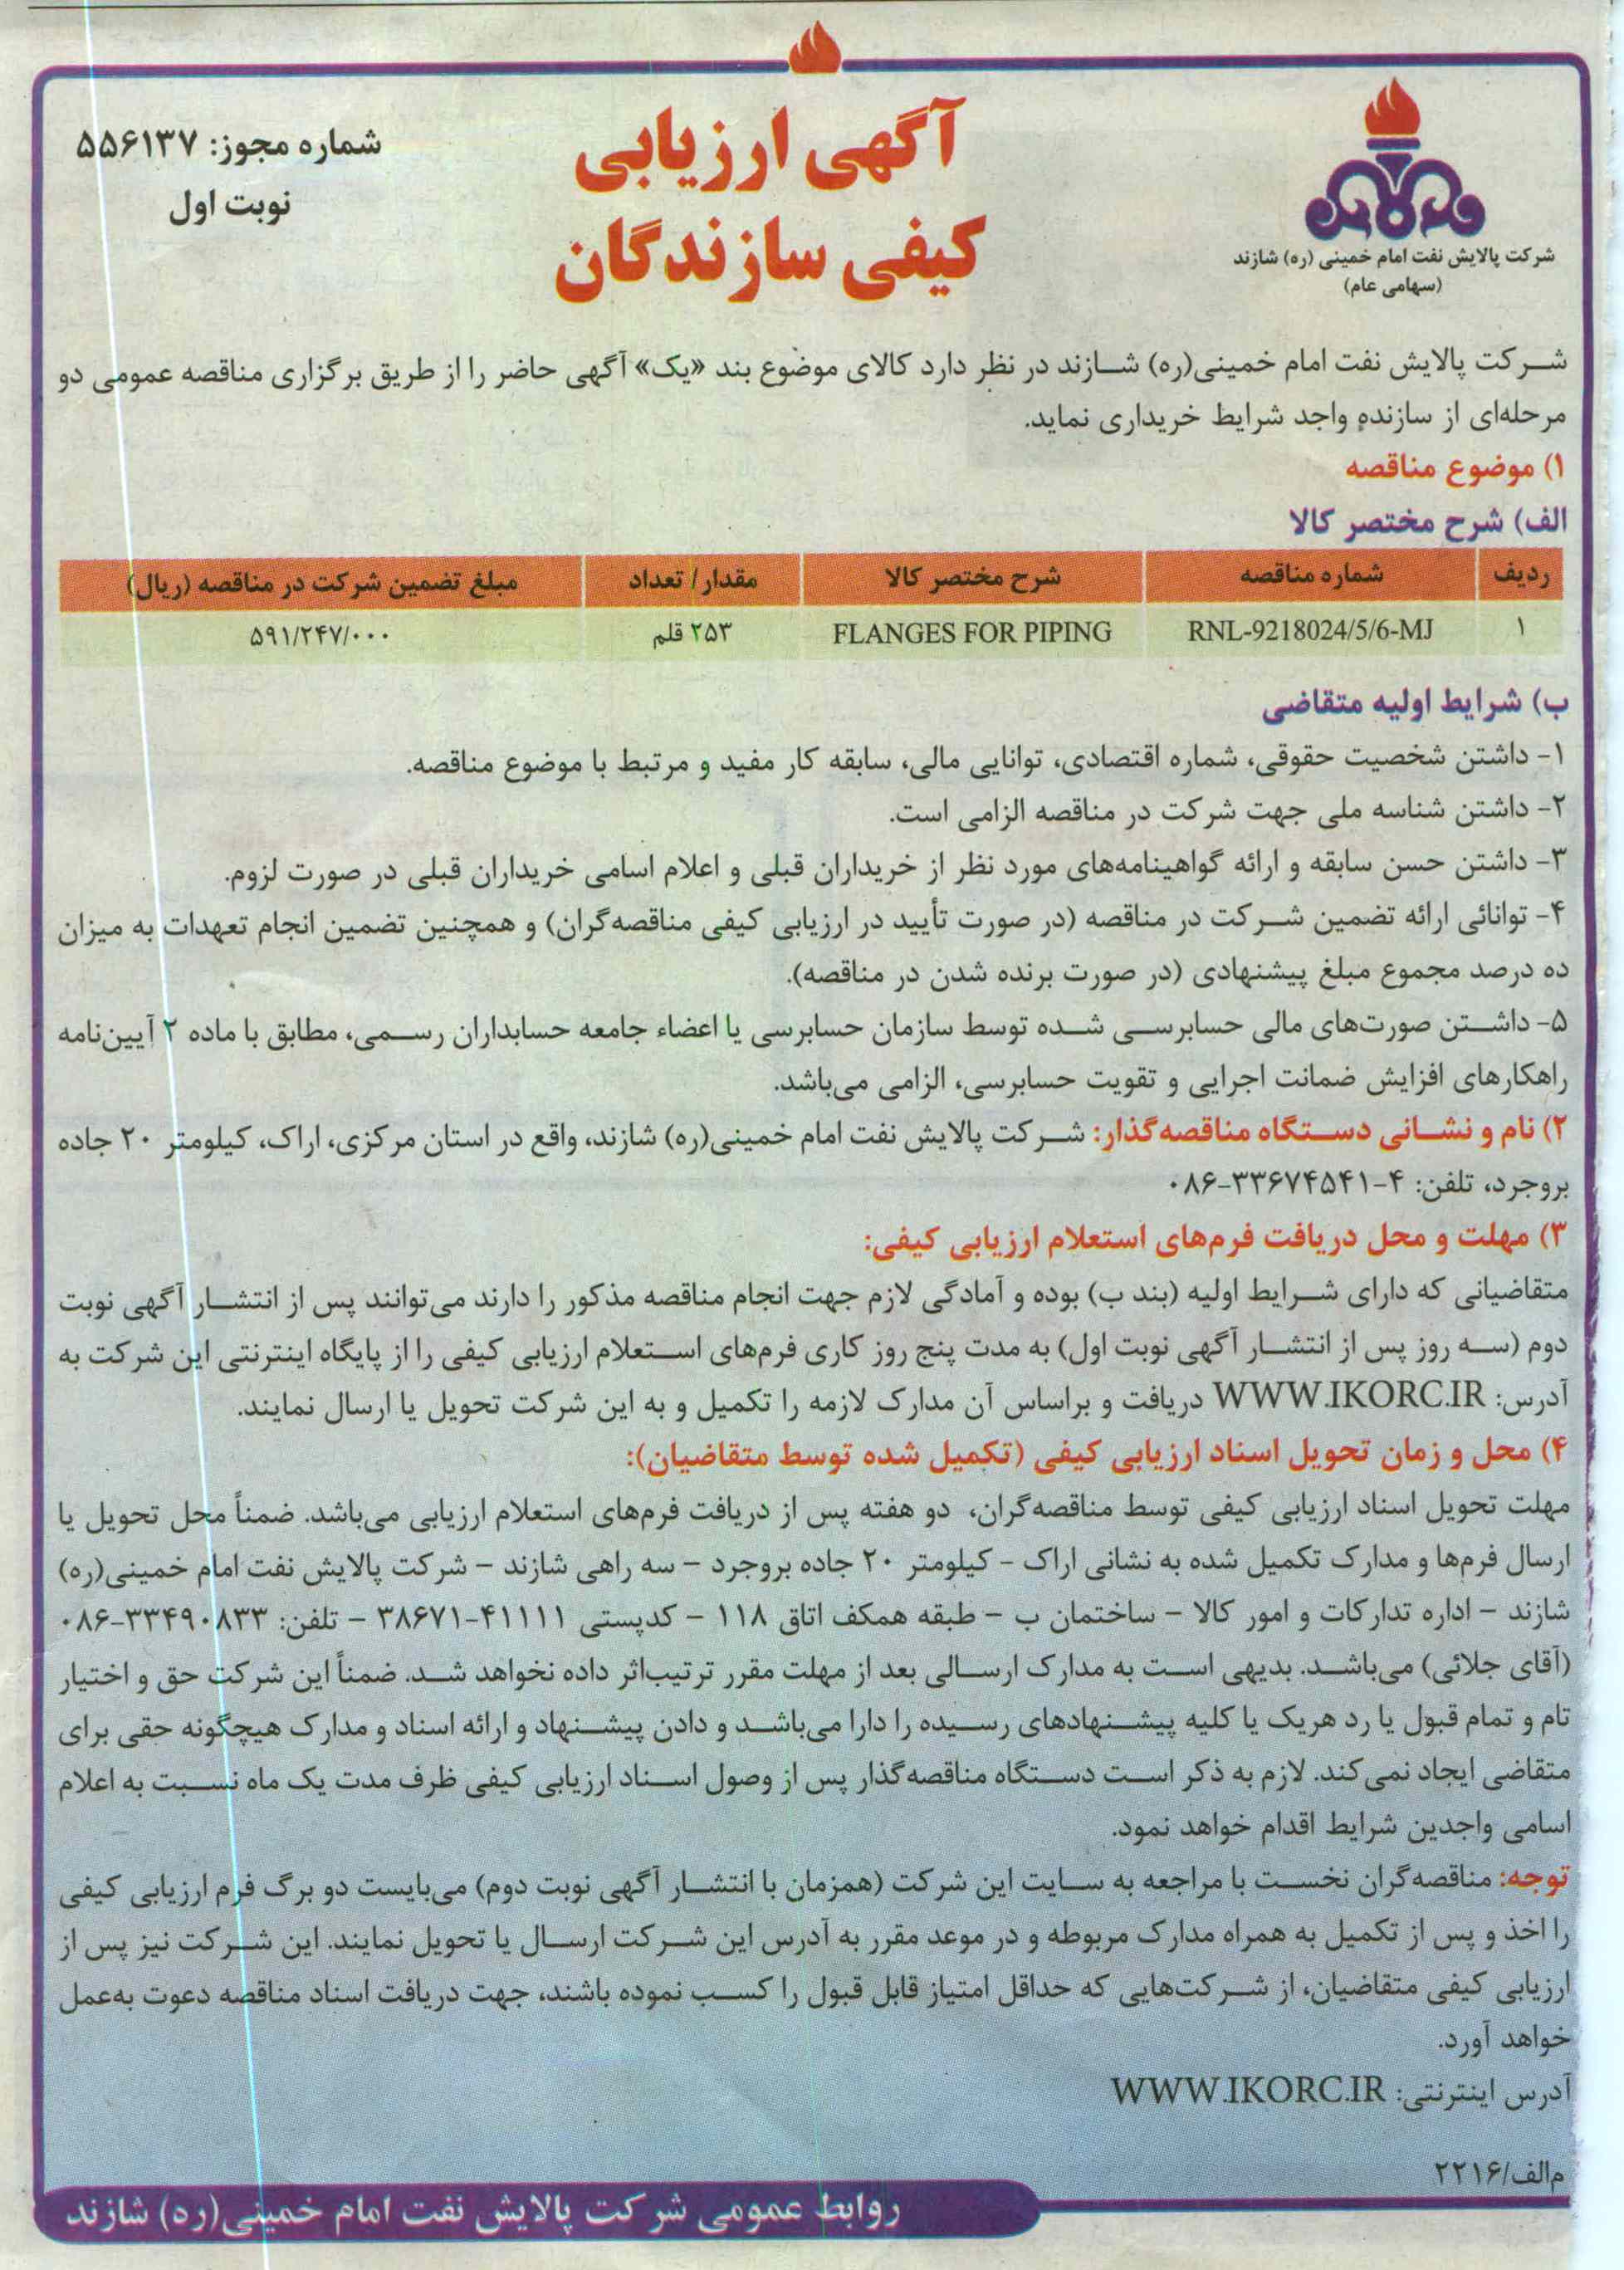 شرکت پالایش نفت امام خمینی (ره) شازند
(سهامی عام)
آگهی ارزیابی
کیفی سازندگان
شماره مجوز: ۵۵۶۱۳۷
نوبت اول
شرکت پالایش نفت امام خمینی(ره) شازند در نظر دارد کالای موضوع بند «یک» آگهی حاضر را از طریق برگزاری مناقصه عمومی دو
مرحله‌ای از سازنده واجد شرایط خریداری نماید.
۱) موضوع مناقصه
الف) شرح مختصر کالا
ردیف شماره مناقصه شرح مختصر کالا مقدار/ تعداد مبلغ تضمین شرکت در مناقصه (ریال)
۱ RNL-9218024/5/6-MJ FLANGES FOR PIPING ۲۵۳ قلم ۵۹۱/۲۴۷/۰۰۰
ب) شرایط اولیه متقاضی
۱- داشتن شخصیت حقوقی، شماره اقتصادی، توانایی مالی، سابقه کار مفید و مرتبط با موضوع مناقصه.
۲- داشتن شناسه ملی جهت شرکت در مناقصه الزامی است.
۳- داشتن حسن سابقه و ارائه گواهینامه‌های مورد نظر از خریداران قبلی و اعلام اسامی خریداران قبلی در صورت لزوم.
۴- توانائی ارائه تضمین شرکت در مناقصه (در صورت تأیید در ارزیابی کیفی مناقصه‌گران) و همچنین تضمین انجام تعهدات به میزان
ده درصد مجموع مبلغ پیشنهادی (در صورت برنده شدن در مناقصه).
۵- داشتن صورت‌های مالی حسابرسی شده توسط سازمان حسابرسی یا اعضاء جامعه حسابداران رسمی، مطابق با ماده ۲ آیین‌نامه
راهکارهای افزایش ضمانت اجرایی و تقویت حسابرسی، الزامی می‌باشد.
۲) نام و نشانی دستگاه مناقصه‌گذار: شرکت پالایش نفت امام خمینی(ره) شازند، واقع در استان مرکزی، اراک، کیلومتر ۲۰ جاده
بروجرد، تلفن: ۴-۳۳۶۷۴۵۴۱-۰۸۶
۳) مهلت و محل دریافت فرم‌های استعلام ارزیابی کیفی:
متقاضیانی که دارای شرایط اولیه (بند ب) بوده و آمادگی لازم جهت انجام مناقصه مذکور را دارند می‌توانند پس از انتشار آگهی نوبت
دوم (سه روز پس از انتشار آگهی نوبت اول) به مدت پنج روز کاری فرم‌های استعلام ارزیابی کیفی را از پایگاه اینترنتی این شرکت به
آدرس: WWW.IKORC.IR دریافت و براساس آن مدارک لازمه را تکمیل و به این شرکت تحویل یا ارسال نمایند.
۴) محل و زمان تحویل اسناد ارزیابی کیفی (تکمیل شده توسط متقاضیان):
مهلت تحویل اسناد ارزیابی کیفی توسط مناقصه‌گران، دو هفته پس از دریافت فرم‌های استعلام ارزیابی می‌باشد. ضمناً محل تحویل یا
ارسال فرم‌ها و مدارک تکمیل شده به نشانی اراک - کیلومتر ۲۰ جاده بروجرد - سه راهی شازند - شرکت پالایش نفت امام خمینی(ره)
شازند - اداره تدارکات و امور کالا - ساختمان ب - طبقه همکف اتاق ۱۱۸ - کدپستی ۴۱۱۱۱-۳۸۶۷۱ - تلفن: ۳۳۴۹۰۸۳۳-۰۸۶
(آقای جلائی) می‌باشد. بدیهی است به مدارک ارسالی بعد از مهلت مقرر ترتیب‌اثر داده نخواهد شد. ضمناً این شرکت حق و اختیار
تام و تمام قبول یا رد هریک یا کلیه پیشنهادهای رسیده را دارا می‌باشد و دادن پیشنهاد و ارائه اسناد و مدارک هیچگونه حقی برای
متقاضی ایجاد نمی‌کند. لازم به ذکر است دستگاه مناقصه‌گذار پس از وصول اسناد ارزیابی کیفی ظرف مدت یک ماه نسبت به اعلام
اسامی واجدین شرایط اقدام خواهد نمود.
توجه: مناقصه‌گران نخست با مراجعه به سایت این شرکت (همزمان با انتشار آگهی نوبت دوم) می‌بایست دو برگ فرم ارزیابی کیفی
را اخذ و پس از تکمیل به همراه مدارک مربوطه و در موعد مقرر به آدرس این شرکت ارسال یا تحویل نمایند. این شرکت نیز پس از
ارزیابی کیفی متقاضیان، از شرکت‌هایی که حداقل امتیاز قابل قبول را کسب نموده باشند، جهت دریافت اسناد مناقصه دعوت به‌عمل
خواهد آورد.
آدرس اینترنتی: WWW.IKORC.IR
م‌الف/۲۲۱۶
روابط عمومی شرکت پالایش نفت امام خمینی(ره) شازند